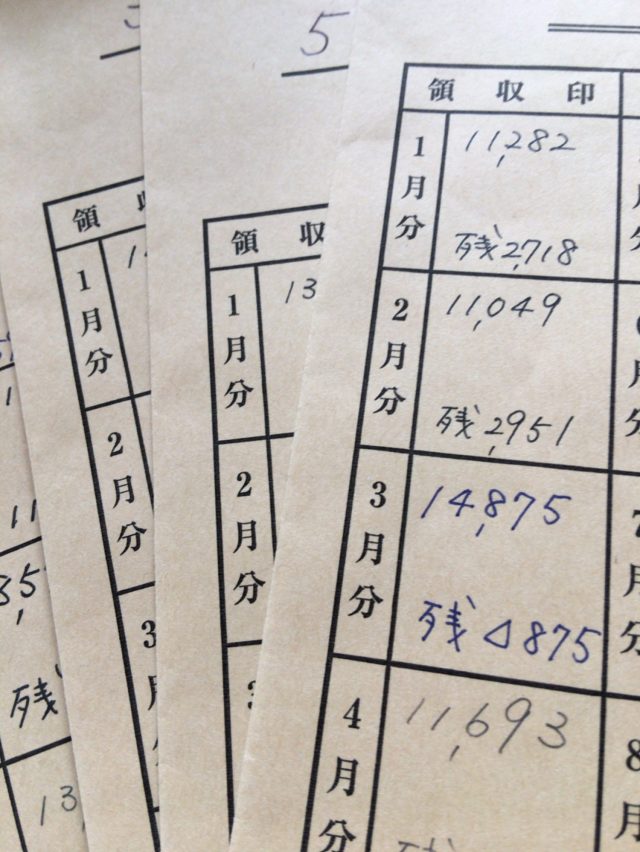 領収印
1月分
11,282
残2,718
2月分
11,049
残2,951
3月分
14,875
残△875
4月分
11,693
残
7月分
8月
5
領収
1月分
13
2月分
3
領
1月分
2月分
3月
11
残
13